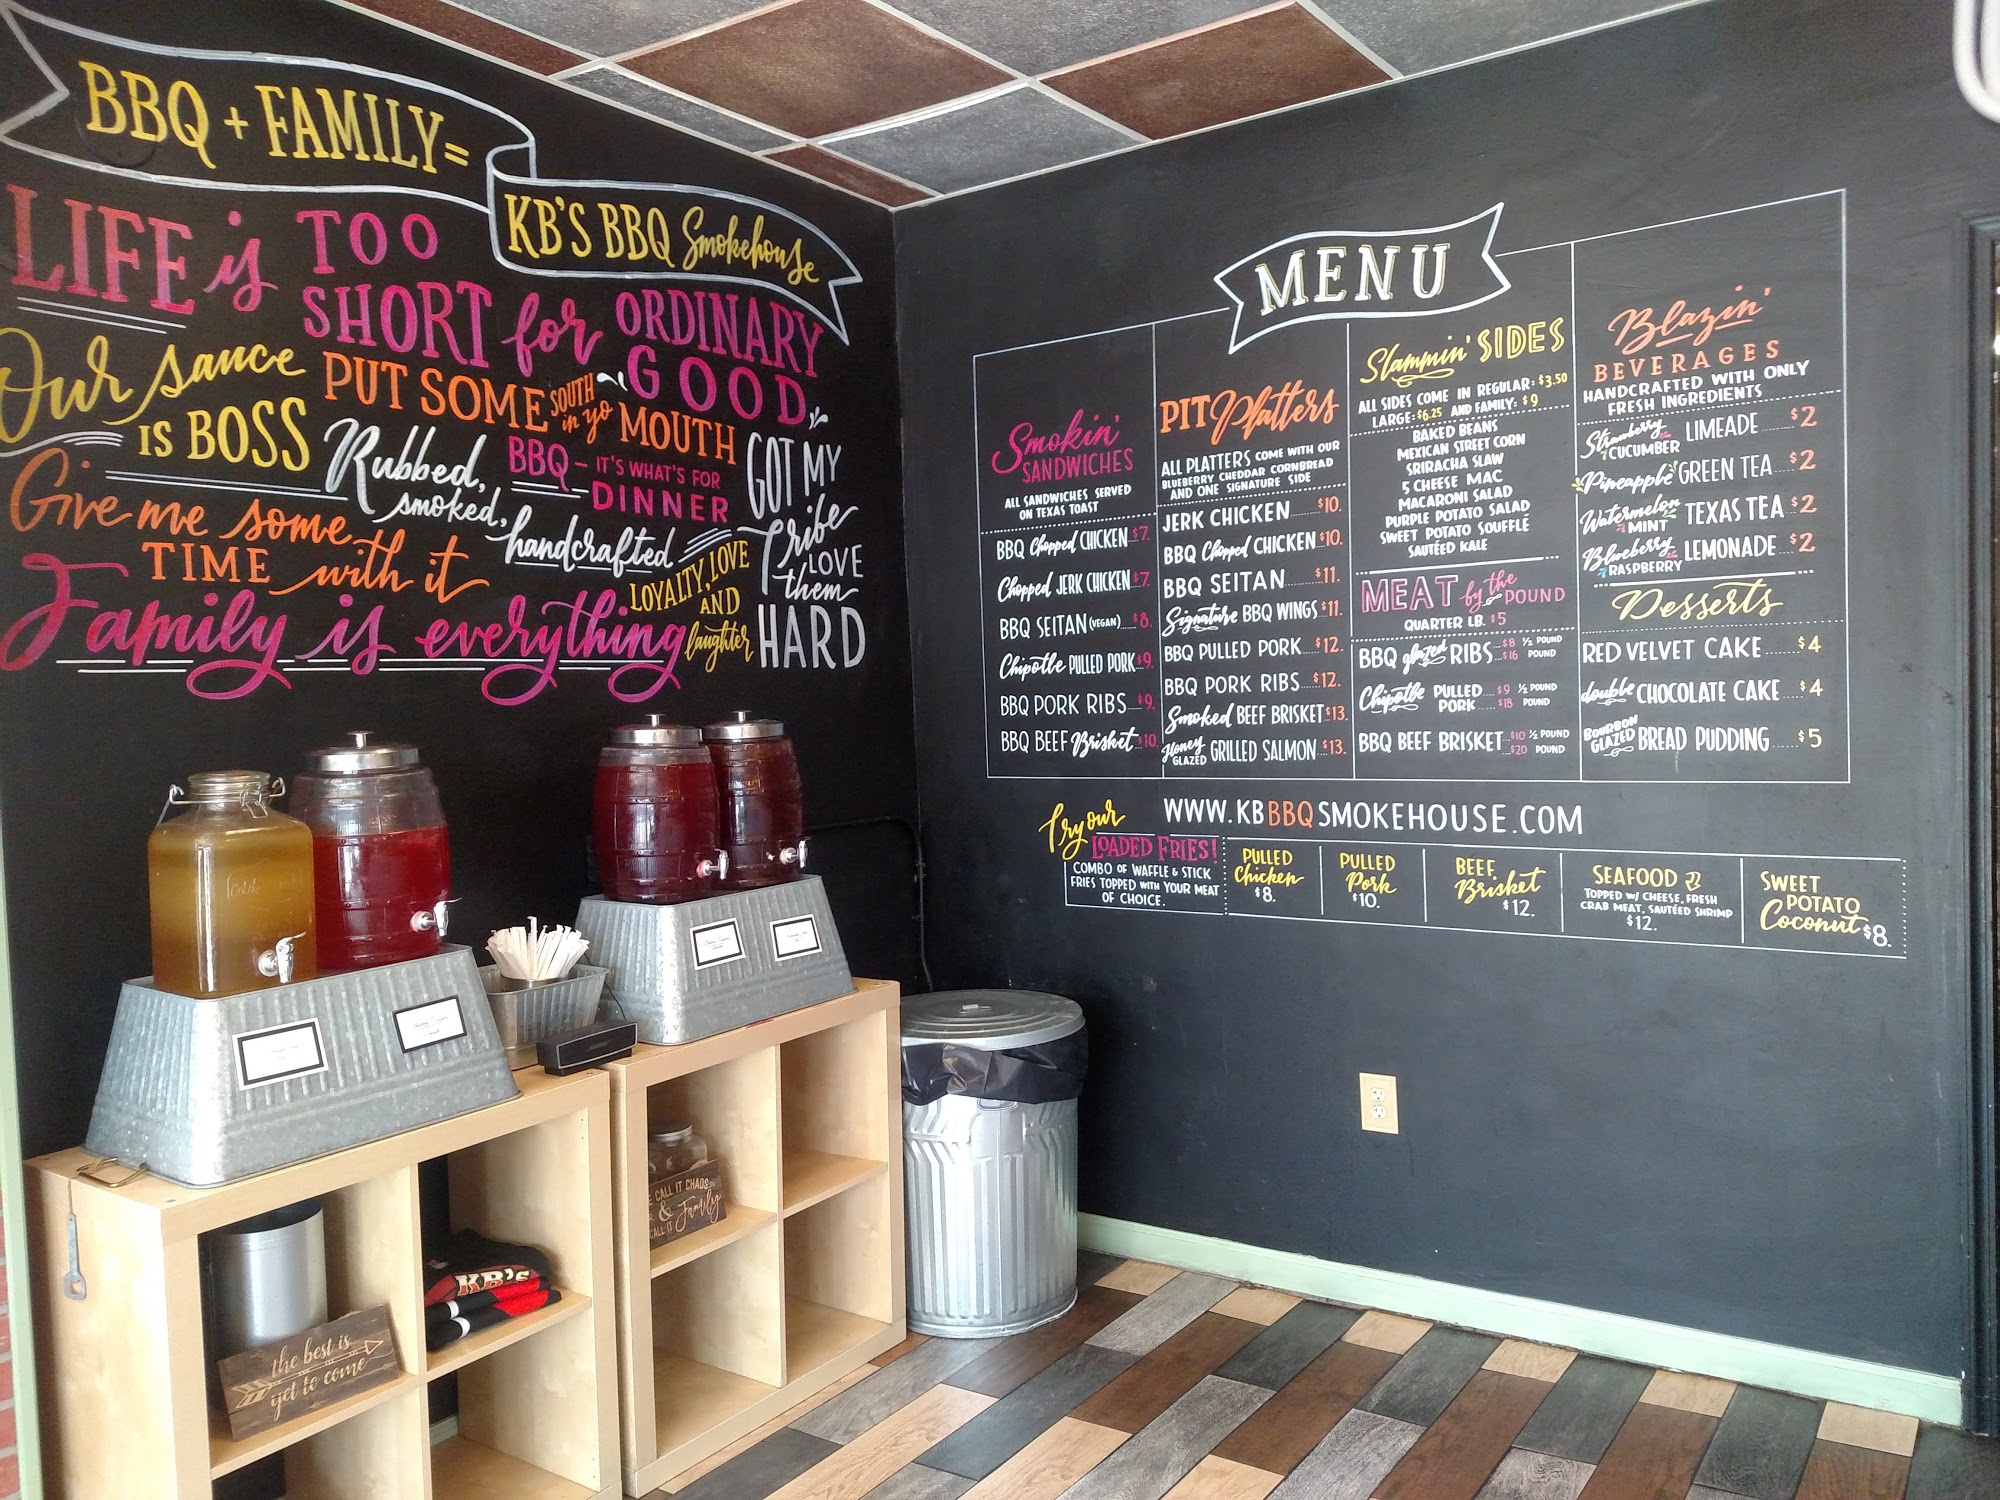 BBQ + FAMILY =
KB'S BBQ Smokehouse
LIFE is TOO
SHORT for ORDINARY
GOOD
Our sauce
IS BOSS
PUT SOME SOUTH in yo MOUTH
Rubbed,
smoked,
handcrafted
BBQ - IT'S WHAT'S FOR
DINNER
GOT MY
Tribe
LOVE
them
HARD
Give me some
TIME with it
LOYALTY, LOVE
AND
laughter
Family is everything
MENU
Smokin'
SANDWICHES
ALL SANDWICHES SERVED
ON TEXAS TOAST
BBQ Chopped CHICKEN $7.
Chopped JERK CHICKEN $7.
BBQ SEITAN (VEGAN) $8.
Chipotle PULLED PORK $9.
BBQ PORK RIBS $9.
BBQ BEEF Brisket $10.
PIT Platters
ALL PLATTERS COME WITH OUR
BLUEBERRY CHEDDAR CORNBREAD
AND ONE SIGNATURE SIDE
JERK CHICKEN $10.
BBQ Chopped CHICKEN $10.
BBQ SEITAN $11.
Signature BBQ WINGS $11.
BBQ PULLED PORK $12.
BBQ PORK RIBS $12.
Smoked BEEF BRISKET $13.
Honey GLAZED GRILLED SALMON $13.
Slammin' SIDES
ALL SIDES COME IN REGULAR: $3.50
LARGE: $6.25 AND FAMILY: $9
BAKED BEANS
MEXICAN STREET CORN
SRIRACHA SLAW
5 CHEESE MAC
MACARONI SALAD
PURPLE POTATO SALAD
SWEET POTATO SOUFFLÉ
SAUTÉED KALE
MEAT by the POUND
QUARTER LB. $5
BBQ glazed RIBS $8 1/2 POUND
$16 POUND
Chipotle PULLED PORK $9 1/2 POUND
$18 POUND
BBQ BEEF BRISKET $10 1/2 POUND
$20 POUND
Blazin'
BEVERAGES
HANDCRAFTED WITH ONLY
FRESH INGREDIENTS
Strawberry CUCUMBER LIMEADE $2
Pineapple GREEN TEA $2
Watermelon MINT TEXAS TEA $2
Blueberry RASPBERRY LEMONADE $2
Desserts
RED VELVET CAKE $4
double CHOCOLATE CAKE $4
BOURBON GLAZED BREAD PUDDING $5
WWW.KBBBQSMOKEHOUSE.COM
Try our
LOADED FRIES!
COMBO OF WAFFLE & STICK
FRIES TOPPED WITH YOUR MEAT
OF CHOICE.
PULLED
Chicken
$8.
PULLED
Pork
$10.
BEEF
Brisket
$12.
SEAFOOD
TOPPED W/ CHEESE, FRESH
CRAB MEAT, SAUTÉED SHRIMP
$12.
SWEET
POTATO
Coconut $8.
CALL IT CHAOS
& Family
CALL IT
KB's
the best is
yet to come